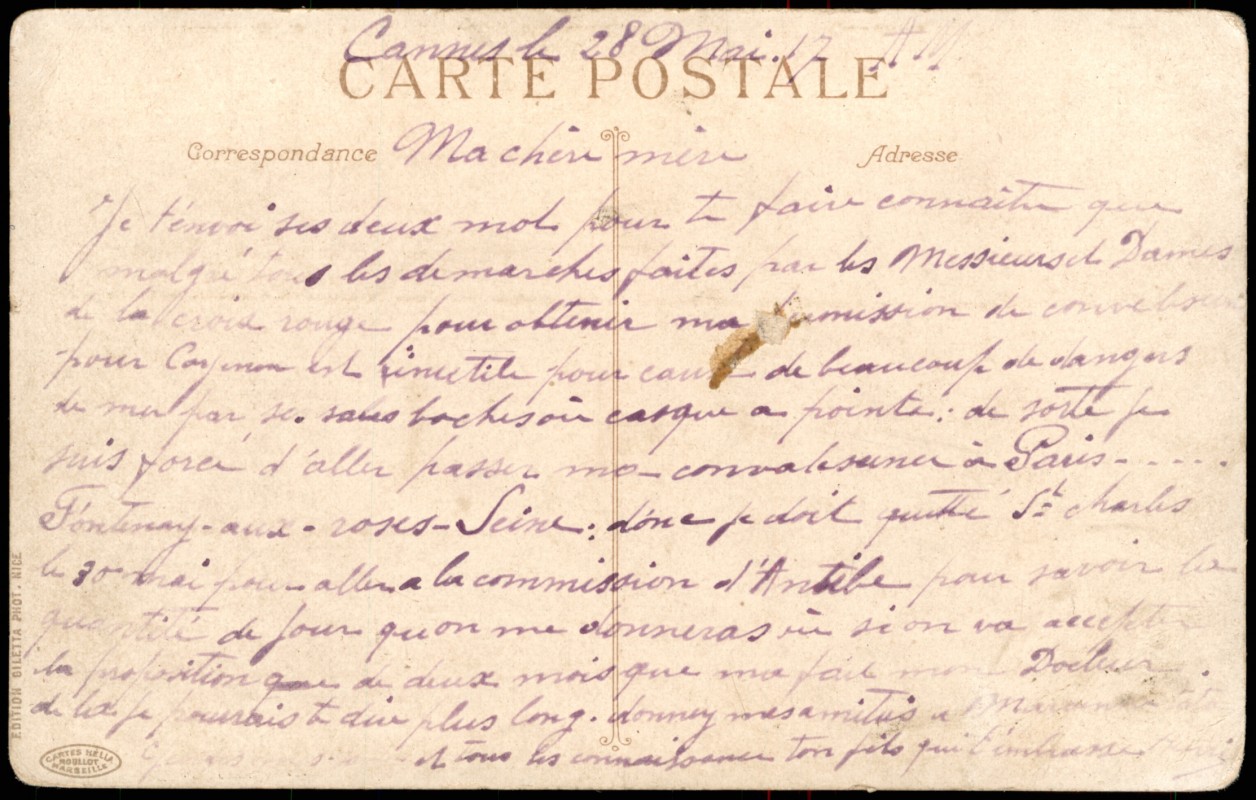 Cannes le 28 Mai. 17 AM
CARTE POSTALE
Correspondance Ma chère mère Adresse
Je t'envoi ses deux mot pour te faire connaître que
malgré tous les demarches faites par les Messieurs et Dames
de la croix rouge pour obtenir ma de
pour est inutile pour cause de beaucoup de dangers
par se. sales boches où casque a pointe: de sorte je
suis forcé d'aller passer ma convalesence à Paris.....
Fontenay-aux-roses-Seine: donc je doit quitté St charles
le 30 mai pour aller a la commission d'Antibe pour savoir la
quantité de jour qu'on me donneras où si on va accepte
la proposition que de deux mois que ma fait mon Docteur
de la je pourrais te dire plus long. donney mes amitiés a
et tous les connaissance ton fils qui t'embrasse
EDITION GILETTA PHOT. NICE
CARTES NELLA
NOULLOT
MARSEILLE